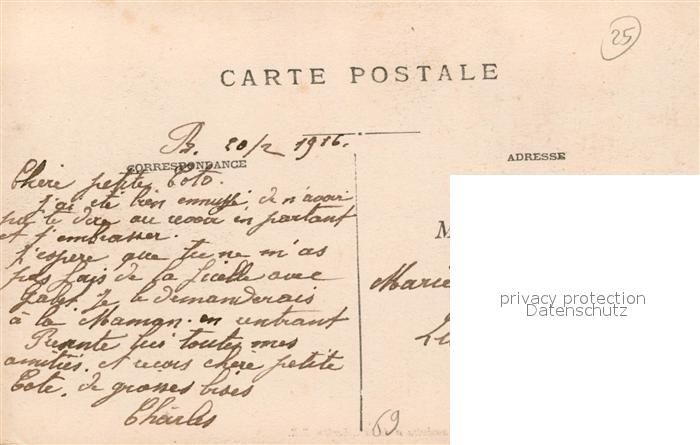 25
CARTE POSTALE
B. 20/2 1916.
CORRESPONDANCE
ADRESSE
Chère petite Toto.
J'ai été bien ennuyé, de n'avoir
pu te dire au revoir en partant
et t'embrasser.
J'espère que tu ne m'as
pas fais de la ficelle avec
Je le demanderais
à la Maman en rentrant
toutes mes
amitiés. et recois chère petite
Toto. de grosses bises
Charles
M
Marie
privacy protection
Datenschutz
69